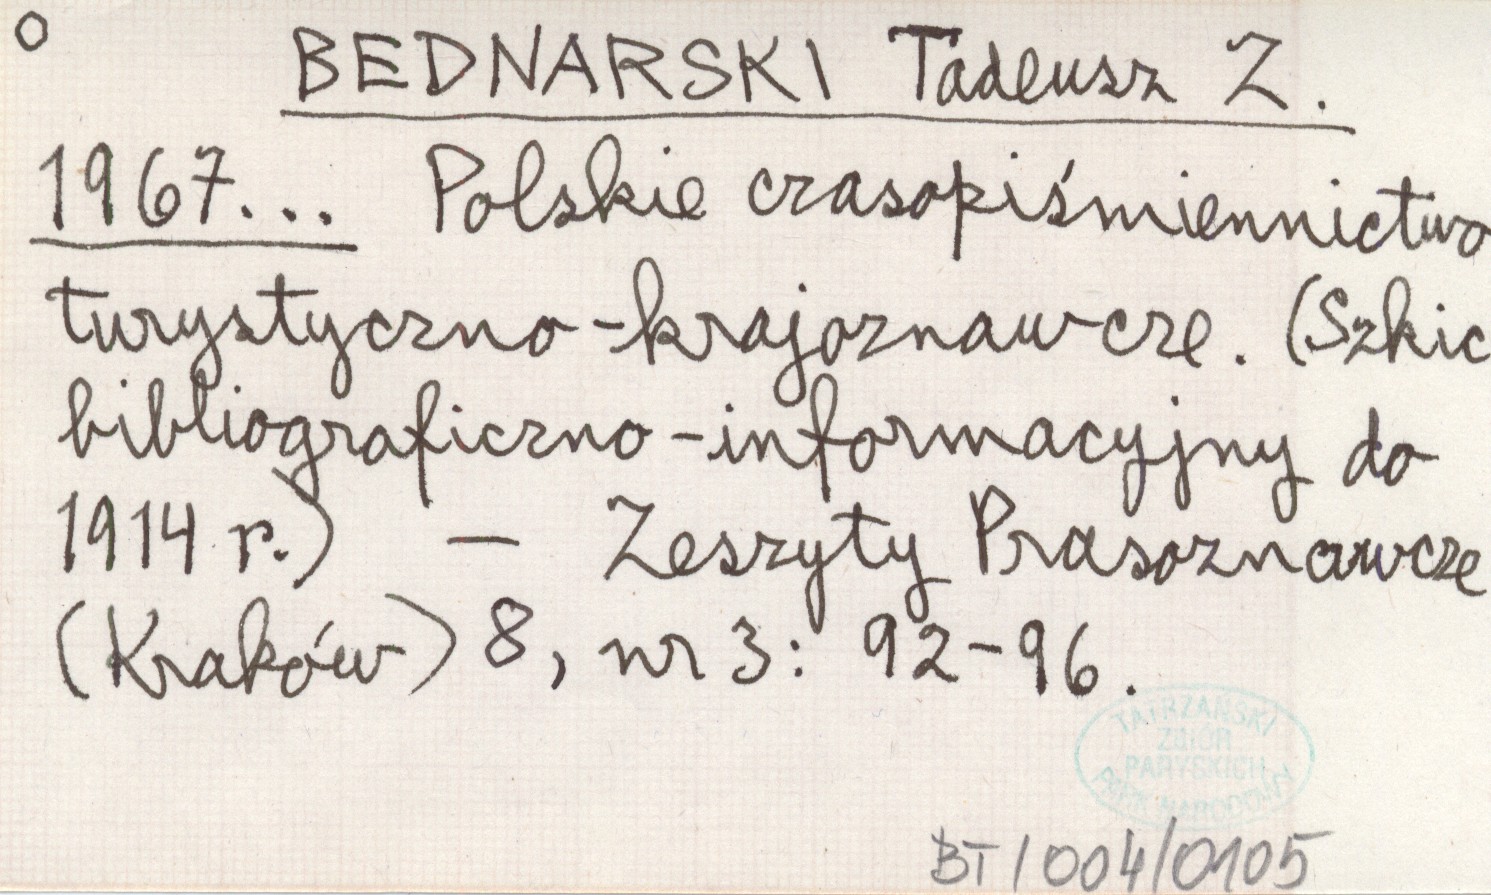 O
BEDNARSKI Tadeusz Z.
1967... Polskie czasopiśmiennictwo
turystyczno-krajoznawcze. (Szkic
bibliograficzno-informacyjny do
1914 r.) — Zeszyty Prasoznawcze
(Kraków) 8, nr 3: 92-96.
TATRZAŃSKI
ZBIÓR
PARYSKICH
PARK NARODOWY
BT/004/0105